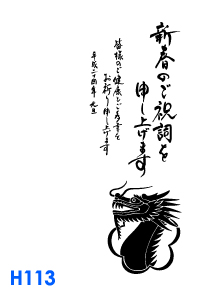 新春のご祝詞を
申し上げます
皆様のご健康とご多幸を
お祈り申し上げます
平成二十四年 元旦
H113